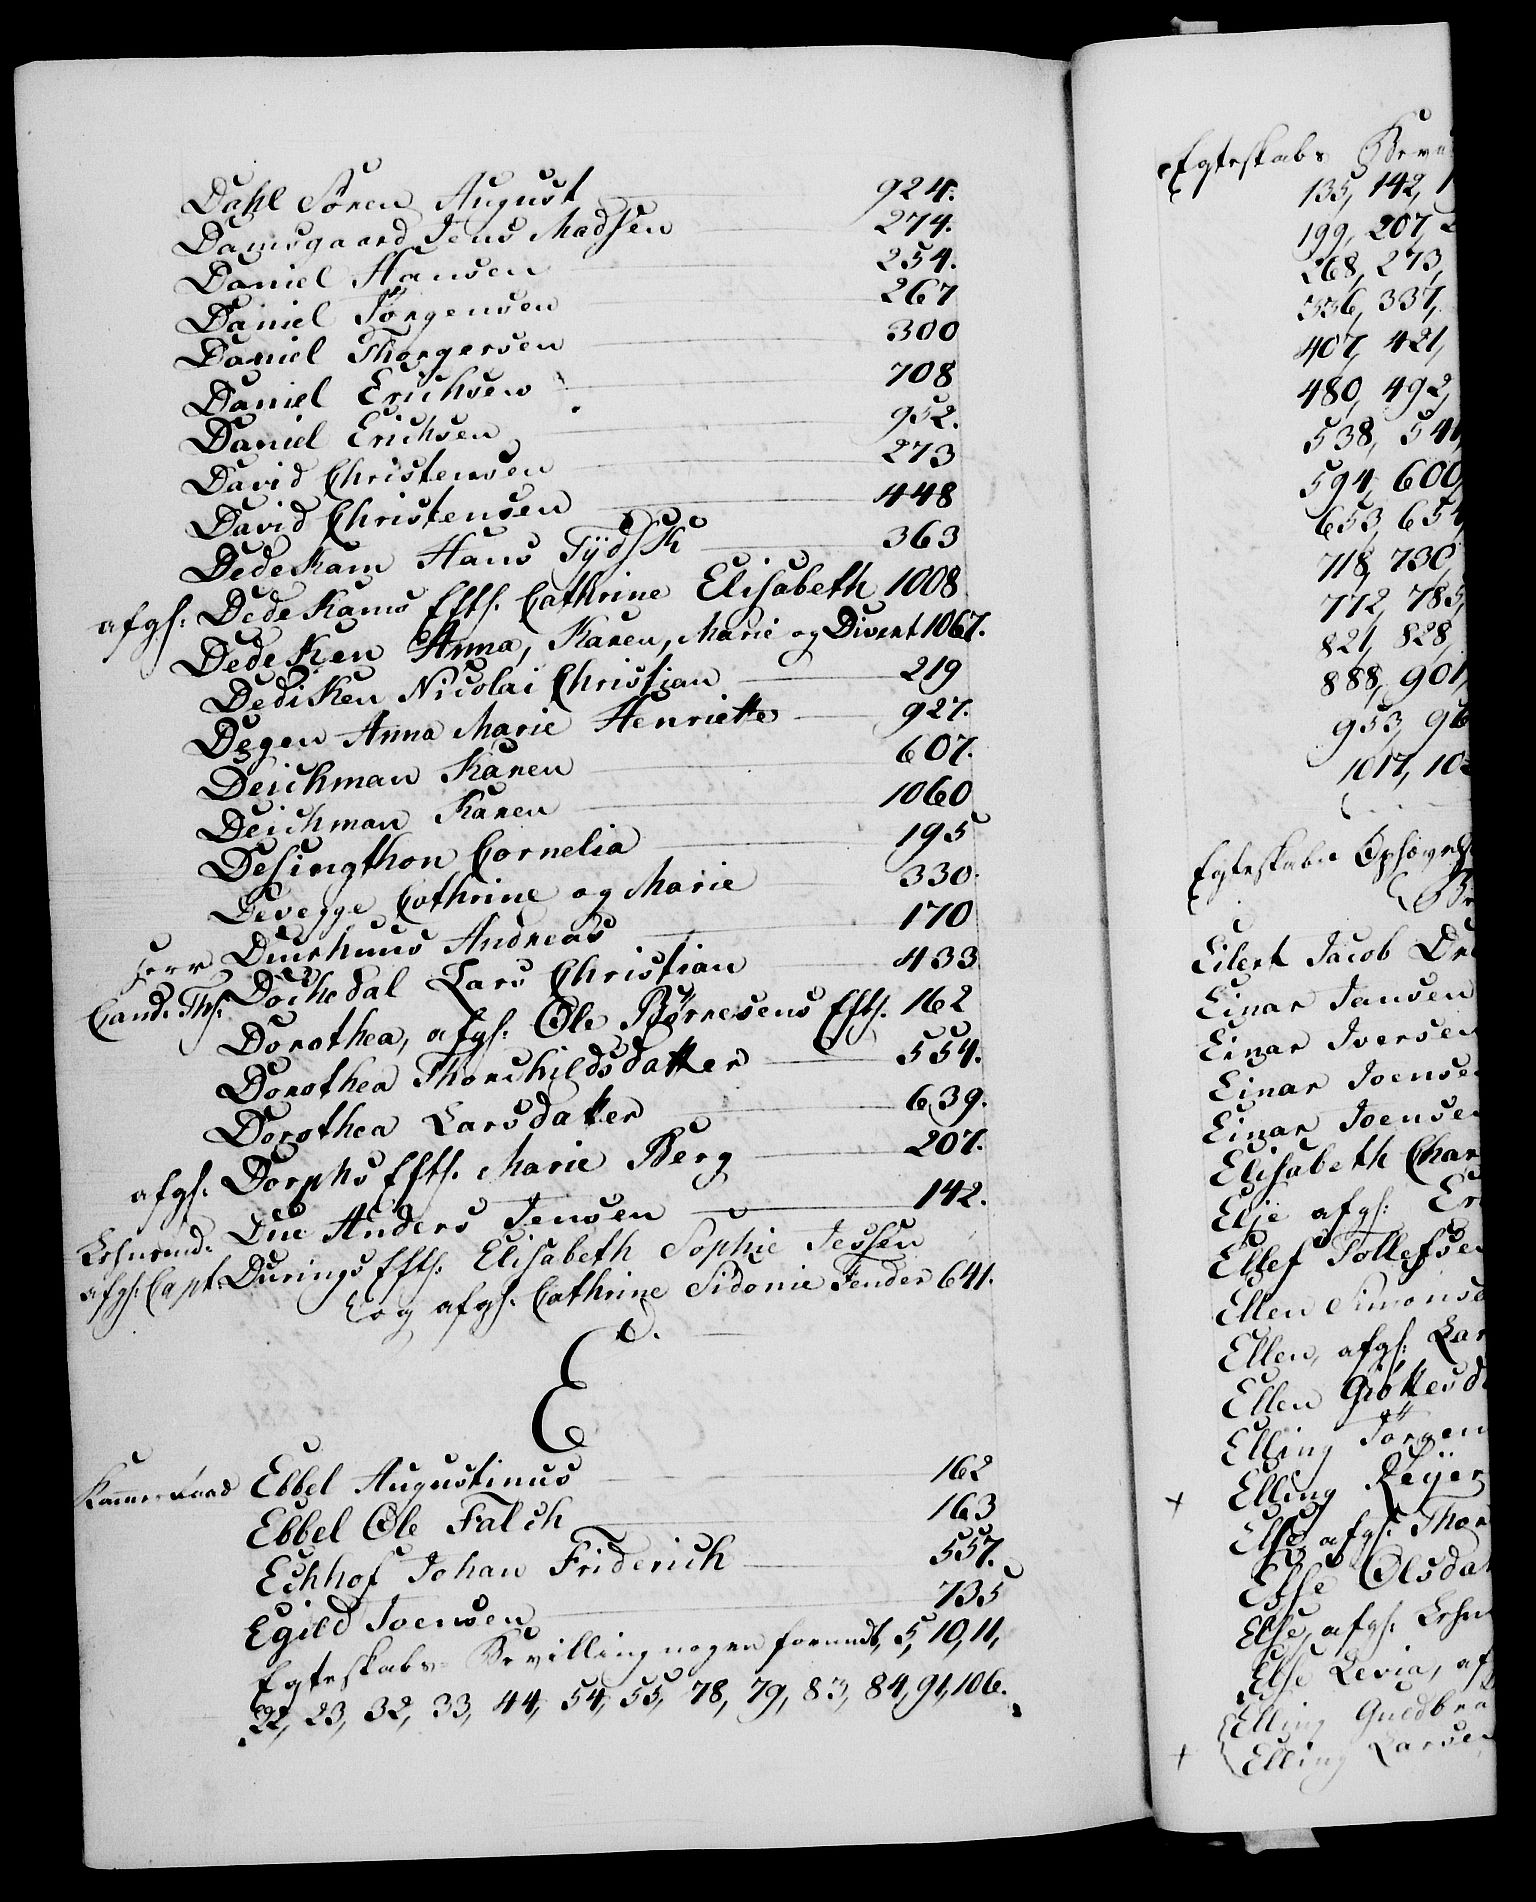 Dahl Sören August 924.
Damsgaard Jens Madsen 274.
Daniel Hansen 254.
Daniel Jörgensen 267
Daniel Thorgersen 300
Daniel Erichsen 708
Daniel Erichsen 952.
David Christensen 273
David Christensen 448
Dedekam Hans Tÿdsk 363
afgs: Dedekams Efts. Cathrine Elisabeth 1008
Dedeken Anna, Karen, Marie og Divert 1067.
Dediken Nicolai Christian 219
Degen Anna Marie Henriette 927.
Deichman Karen 607.
Deichman Karen 1060
Desingthon Cornelia 195
Devegge Cathrine og Marie 330.
Herr Duurhuus Andreas 170
Cand: Ths: Dochedal Lars Christian 433
Dorothea, afgs: Ole Börresens Efts. 162
Dorothea Thorchildsdatter 554.
Dorothea Larsdatter 639.
afgs. Dorphs Efts. Marie Berg 207.
Lehnsmd: Due Anders Jensen 142.
afgs: Capt: Durings Efts. Elisabeth Sophie Jessen
og afgs. Cathrine Sidonie Fender 641.
E.
Kammerraad Ebbel Augustinus 162
Ebbel Ole Falch 163
Echhof Johan Friderich 557.
Egild Joensen 735
Egteskabs Bevillinger 5, 10, 11,
22, 23, 32, 33, 44, 54, 55, 78, 79, 83, 84, 91, 106.
Egteskabs Bevi
135, 142, 1
199, 207, 2
268, 273,
336, 337,
407, 421,
480, 492,
538, 541,
594, 600,
653, 654
718, 730,
772, 785,
821, 828,
888, 901,
953, 96
1017, 102
Egteskabs Ophævels
Eilert Jacob Dre
Einar Jansen
Einar Iversen
Einar Joense
Einar Joensen
Elisabeth Char
Elje afgs: Er
Ellef Tollefsen
Ellen Simonsd
Ellen, afgs: Lar
Ellen Giöttesd
Elling Jörgen
Elling Reÿer
Else, afgs: Thor
Else Olsdat
Else, afgs. Lehn
Else Levia, af
Elling Guldbra
Elling Larsen